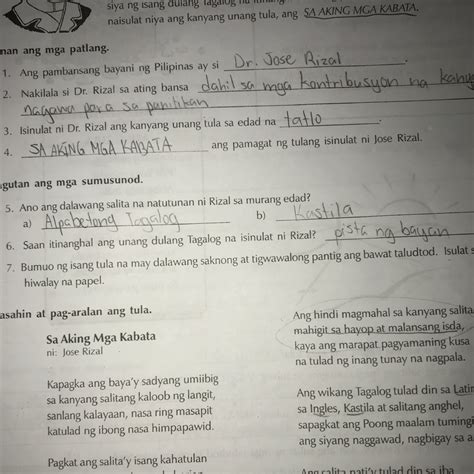 siya ng isang dulang Tagalog na
naisulat niya ang kanyang unang tula, ang SA AKING MGA KABATA.
nan ang mga patlang.
1. Ang pambansang bayani ng Pilipinas ay si Dr. Jose Rizal.
2. Nakilala si Dr. Rizal sa ating bansa dahil sa mga kontribusyon na kany
nagawa para sa panitikan.
3. Isinulat ni Dr. Rizal ang kanyang unang tula sa edad na tatlo.
4. SA AKING MGA KABATA ang pamagat ng tulang isinulat ni Jose Rizal.
gutan ang mga sumusunod.
5. Ano ang dalawang salita na natutunan ni Rizal sa murang edad?
a) Alpabetong Tagalog b) Kastila
6. Saan itinanghal ang unang dulang Tagalog na isinulat ni Rizal? pista ng bayan
7. Bumuo ng isang tula na may dalawang saknong at tigwawalong pantig ang bawat taludtod. Isulat s
hiwalay na papel.
asahin at pag-aralan ang tula.
Sa Aking Mga Kabata
ni: Jose Rizal
Kapagka ang baya'y sadyang umiibig
sa kanyang salitang kaloob ng langit,
sanlang kalayaan, nasa ring masapit
katulad ng ibong nasa himpapawid.
Pagkat ang salita'y isang kahatulan
Ang hindi magmahal sa kanyang salita
mahigit sa hayop at malansang isda,
kaya ang marapat pagyamaning kusa
na tulad ng inang tunay na nagpala.
Ang wikang Tagalog tulad din sa Latin
sa Ingles, Kastila at salitang anghel,
sapagkat ang Poong maalam tumingi
ang siyang naggawad, nagbigay sa a
Ang salita nati'y tulad din sa iba